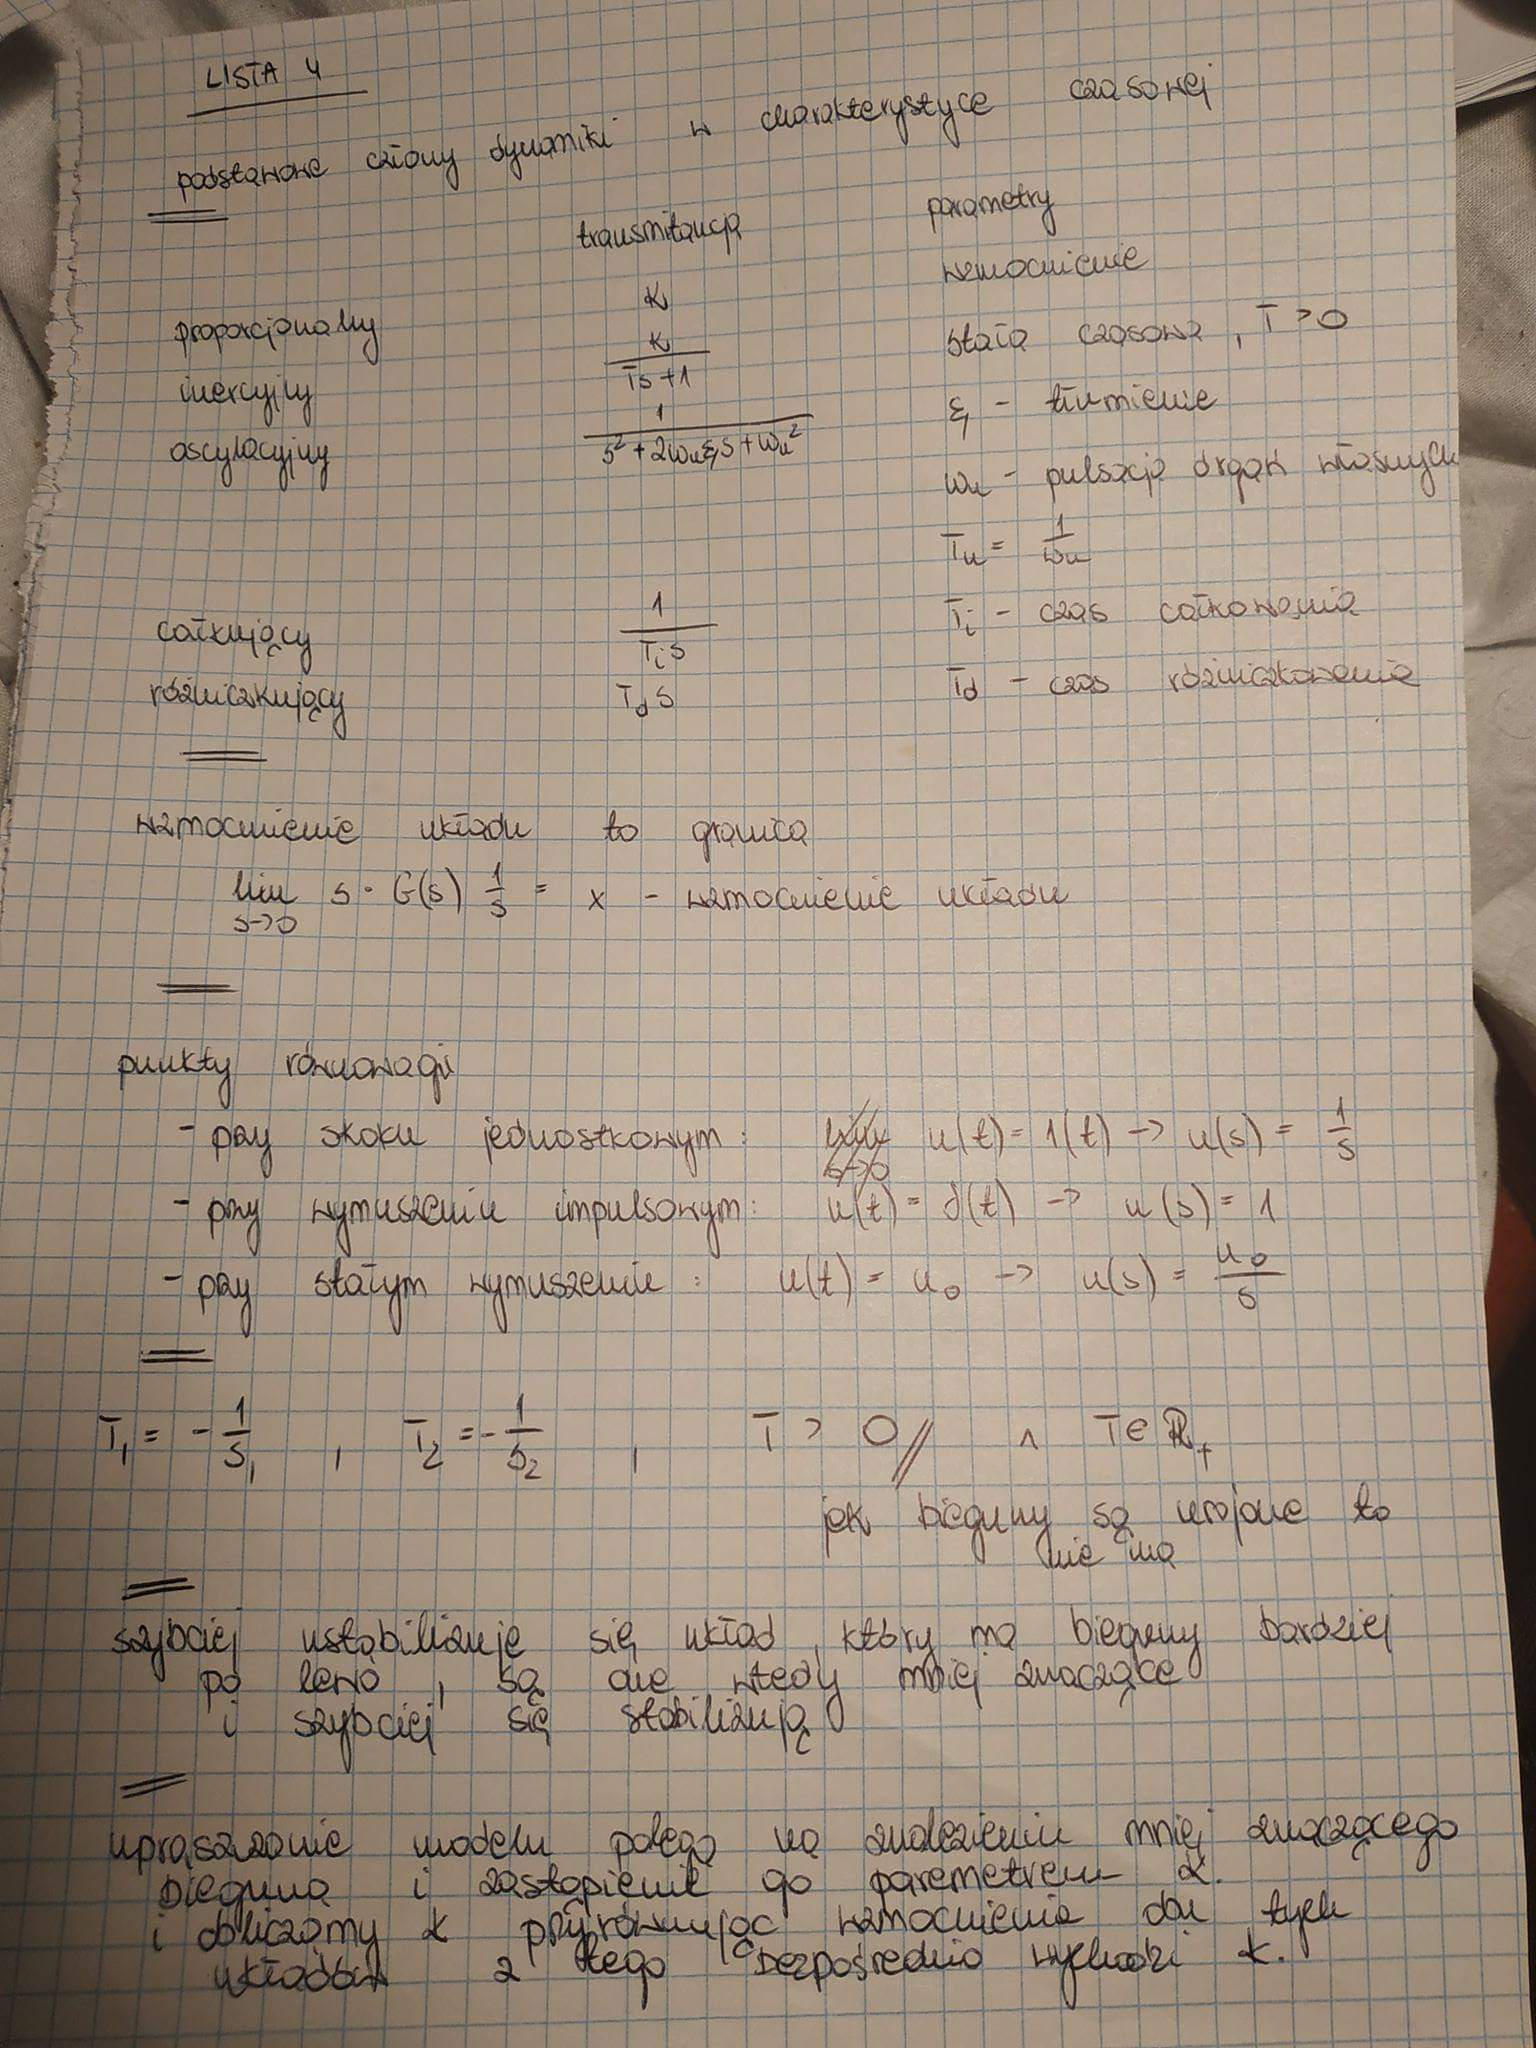 LISTA 4
podstawowe człony dynamiki w charakterystyce czasowej
transmitancja parametry
proporcjonalny K wzmocnienie
inercyjny K / Ts+1 stała czasowa, T > 0
oscylacyjny 1 / s² + 2ωₙξs + ωₙ² ξ - tłumienie
ωₙ - pulsacja drgań własnych
Tₙ = 1/ωₙ
całkujący 1 / Tᵢs Tᵢ - czas całkowania
różniczkujący T_d s T_d - czas różniczkowania
wzmocnienie układu to granica
lim s→0 s · G(s) 1/s = x - wzmocnienie układu
punkty równowagi
- przy skoku jednostkowym: u(t) = 1(t) → u(s) = 1/s
- przy wymuszeniu impulsowym: u(t) = δ(t) → u(s) = 1
- przy stałym wymuszeniu: u(t) = u₀ → u(s) = u₀/s
T₁ = -1/s₁ , T₂ = -1/s₂ , T > 0 ∧ T ∈ ℝ₊
jak bieguny są urojone to
nie ma
szybciej ustabilizuje się układ, który ma bieguny bardziej
po lewo, są one wtedy mniej znaczące
i szybciej się stabilizują
upraszczanie modelu polega na znalezieniu mniej znaczącego
bieguna i zastąpienie go parametrem α.
i obliczamy α przyrównując wzmocnienia dla tych
układów z tego bezpośrednio wychodzi α.